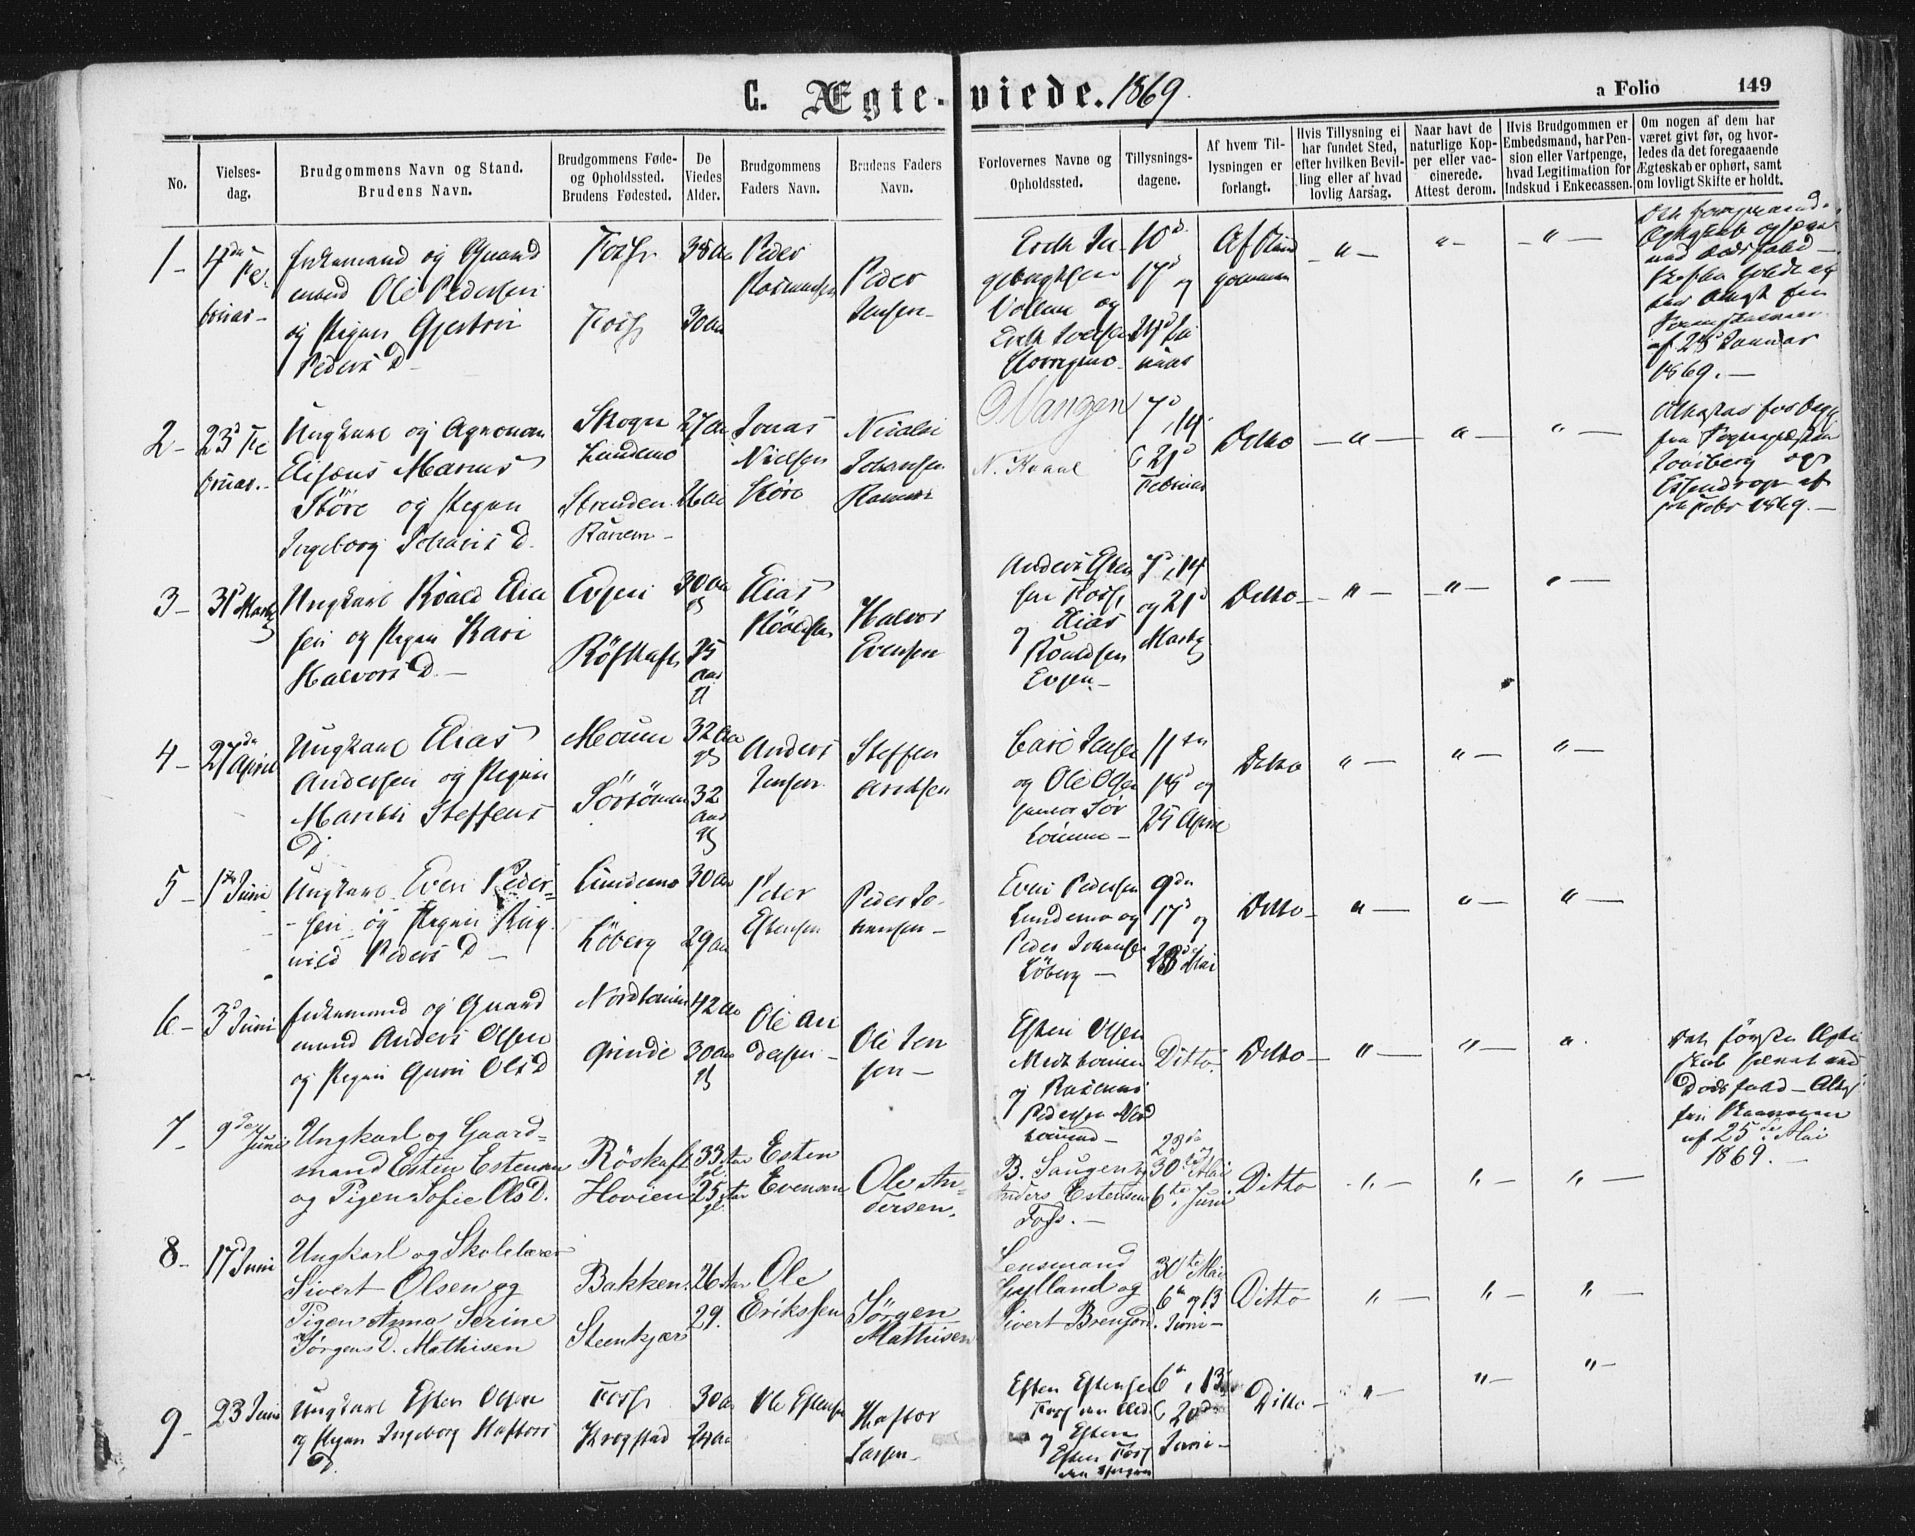 C. Ægte-viede. 1869.
a Folio 149
No.
Vielses-
dag.
Brudgommens Navn og Stand.
Brudens Navn.
Brudgommens Føde-
og Opholdssted.
Brudens Fødested.
De
Viedes
Alder.
Brudgommens
Faders Navn.
Brudens Faders
Navn.
Forlovernes Navne og
Opholdssted.
Tillysnings-
dagene.
Af hvem Til-
lysningen er
forlangt.
Hvis Tillysning ei
har fundet Sted,
efter hvilken Bevil-
ling eller af hvad
lovlig Aarsag.
Naar havt de
naturlige Kop-
per eller vac-
cinerede.
Attest derom.
Hvis Brudgommen er
Embedsmand, har Pen-
sion eller Vartpenge,
hvad Legitimation for
Indskud i Enkecassen.
Om nogen af dem har
været givt før, og hvor-
ledes da det foregaaende
Ægteskab er ophørt, samt
om lovligt Skifte er holdt.
1 -
4de Fe-
bruar -
Enkemand og Gaard
mand Ole Pedersen
og Pigen Gjertrui
Peders D -
Foss
Foss
38 Aar
30 Aar
Peder
Rasmussen
Peder
Jensen -
Erik In-
gebrigtsen
Vollan og
Erik Iversen
10d
17d og
24d Ja
nuar
Af Brud
gommen
" -
" -
- " -
af 25 Januar
1869. -
2 -
23d Fe
bruar. -
Ungkarl og Agronom
Elisæus Marius
Störe og Pigen
Ingeborg Johans D.
Skogn
Lundemo
Strinden
Ranem -
27 Aar
26 Aar
Jonas
Nielsen
Störe
Nicolai
Johansen
Ranem
Mangen
N. Kvaal
7d, 14
& 21d
Februar
Ditto
- " -
" -
" -
1869. -
3 -
31 Marts
Ungkarl Roald Elia
sen og Pigen Kari
Halvors D. -
Evjen
Röskaft
30 Aar
gl
25
Aar
gl
Elias
Roaldsen
Halvor
Evensen
Anders Esten
sen Foss,
og Elias
Roaldsen
Evjen -
7d, 14
og 21d
Marts
Ditto -
- " -
- " -
" -
4 -
27de April
Ungkarl Elias
Andersen og Pigen
Marithi Steffens
D.
32 Aar
gl
32
Aar
gl
Anders
Jensen
Steffen
Arntsen
Carl Jensen
og Ole Olsen
11te
18d og
25 April
Ditto
" -
" -
" -
5 -
1ste Juni
Ungkarl Even Peder-
sen og Pigen Rag
nild Peders D -
Lundemo
Löberg
30 Aar
29 Aar
Peder
Estensen
Peder Jo-
hansen -
Even Pedersen
Lundemo og
Peder Johansen
Löberg -
9de
17d og
23d Mai
Ditto -
" -
" -
" -
6 -
3d Juni
Enkemand og Gaard
mand Anders Olsen
og Pigen Guri Ols D
Grinde
42 Aar
30 Aar
gl
Ole An
dersen -
Ole Jen
sen -
Esten Olsen
og Rasmus
Pedersen Nord
Ditto
Ditto -
" -
" -
"
Det første Ægte
skab hævet ved
Dödsfald - Attest
fra
af 25de Mai
1869. -
7 -
9de Juni
Ungkarl og Gaard-
mand Esten Estensen
og Pigen Sofie Ols D.
Röskaft
Hovien
33 Aar
gl.
25 Aar
gl.
Esten
Evensen
Ole An-
dersen.
B. Saugen og
Anders Estensen
Foss. -
23de
30te Mai
6te Juni
Ditto
" -
" -
" -
8 -
17d Juni
Ungkarl og Skolelærer
Sivert Olsen og
Pigen Anna Serine
Jörgens D. Mathisen
Bakken
Steenkjær
26 Aar
29.
Ole
Eriksen
Jörgen
Mathisen
Lensmand
Gylland og
Sivert
30te Mai
6te og 13
Juni -
Ditto
" -
" -
" -
9 -
23 Juni
Ungkarl Esten Olsen
og Pigen Ingeborg Haftors
D.
Foss
Krogstad
30 Aar
24 Aar
Ole Estensen
Haftor
Larsen -
Esten Estensen
og Esten
Esten Foss
6te, 13de
& 20de
Juni -
Ditto -
" -
" -
" -